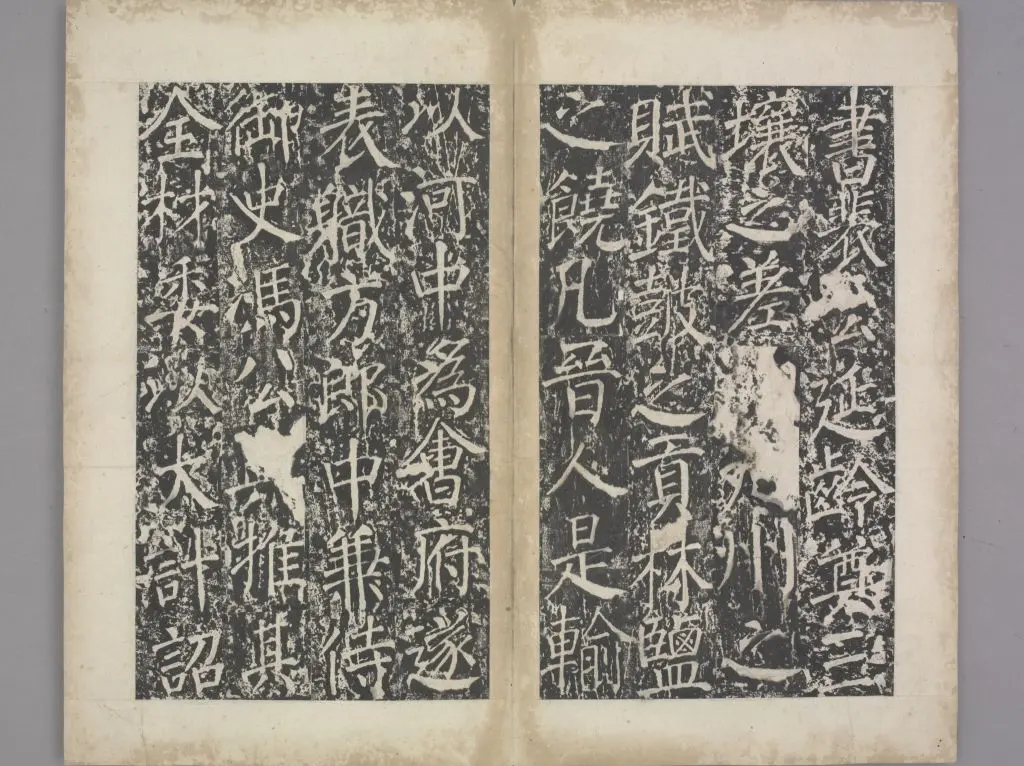 書裴公延齡奠三
壤之差州之
賦鐵鼓之貢林鹽
之饒凡晉人是輸
以河中爲會府遂
表職方郎中兼侍
御史馮公推其
全材委以大計詔